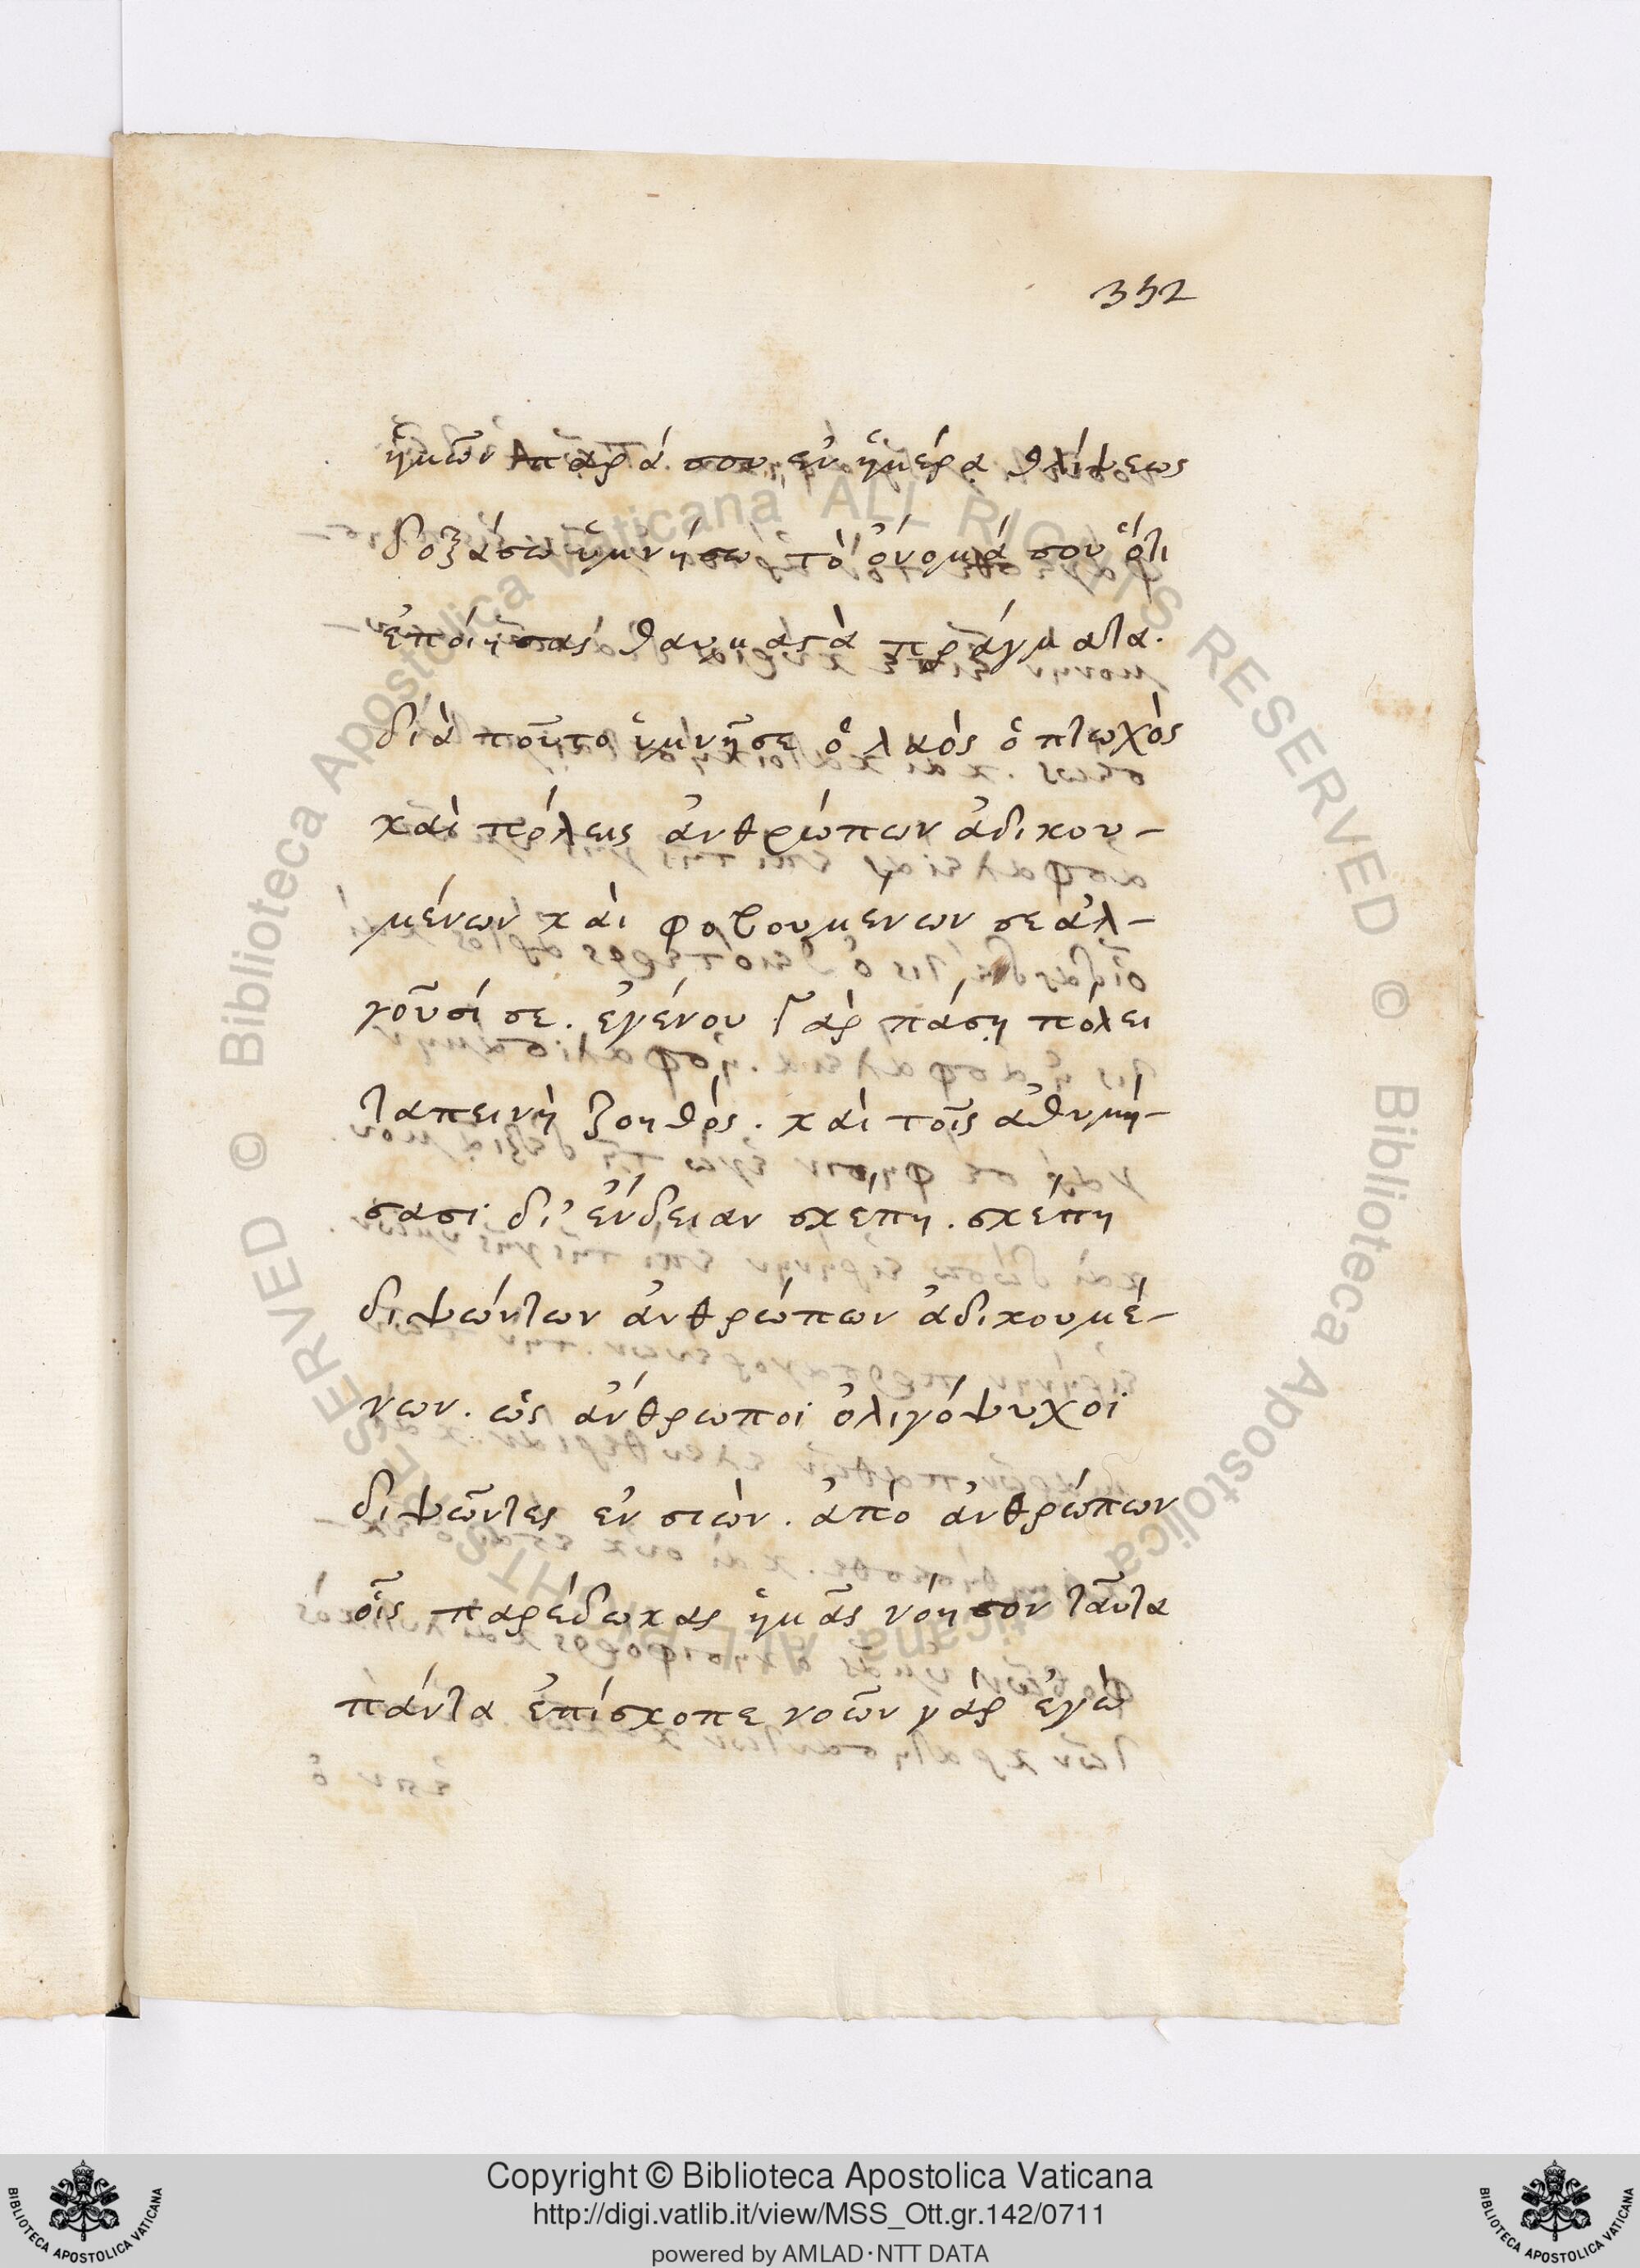 352
ἡμῶν παρά σου, ἐν ἡμέρᾳ θλίψεως
δοξάσω ὑμνήσω τὸ ὄνομά σου ὅτι
ἐποίησας θαυμαστὰ πράγματα.
διὰ τοῦτο ὑμνῆσε ὁ λαός ὁ πτωχὸς
καὶ πόλεις ἀνθρώπων ἀδικου–
μένων καὶ φοβουμένων σε ἀλ–
γοῦσί σε. ἐγένου γὰρ πάσῃ πόλει
ταπεινὴ βοηθός. καὶ τοῖς ἀθυμή–
σασι δι' ἔνδειαν σκέπη. σκέπη
διψώντων ἀνθρώπων ἀδικουμέ–
νων. ὡς ἄνθρωποι ὀλιγόψυχοι
διψῶντες ἐν σιὼν. ἀπὸ ἀνθρώπων
οἷς παρέδωκας ἡμᾶς νόησον ταῦτα
πάντα ἐπίσκοπε νοῶν γάρ ἐγὼ
Biblioteca Apostolica Vaticana ALL RIGHTS RESERVED ©
Biblioteca Apostolica Vaticana ALL RIGHTS RESERVED ©
Copyright © Biblioteca Apostolica Vaticana
http://digi.vatlib.it/view/MSS_Ott.gr.142/0711
powered by AMLAD·NTT DATA
BIBLIOTECA APOSTOLICA VATICANA
BIBLIOTECA APOSTOLICA VATICANA